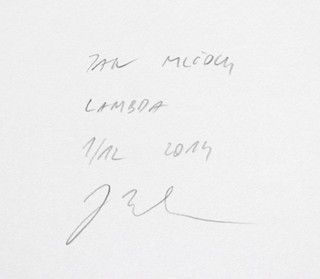 JAN MLČOCH
LAMBDA
1/12 2014